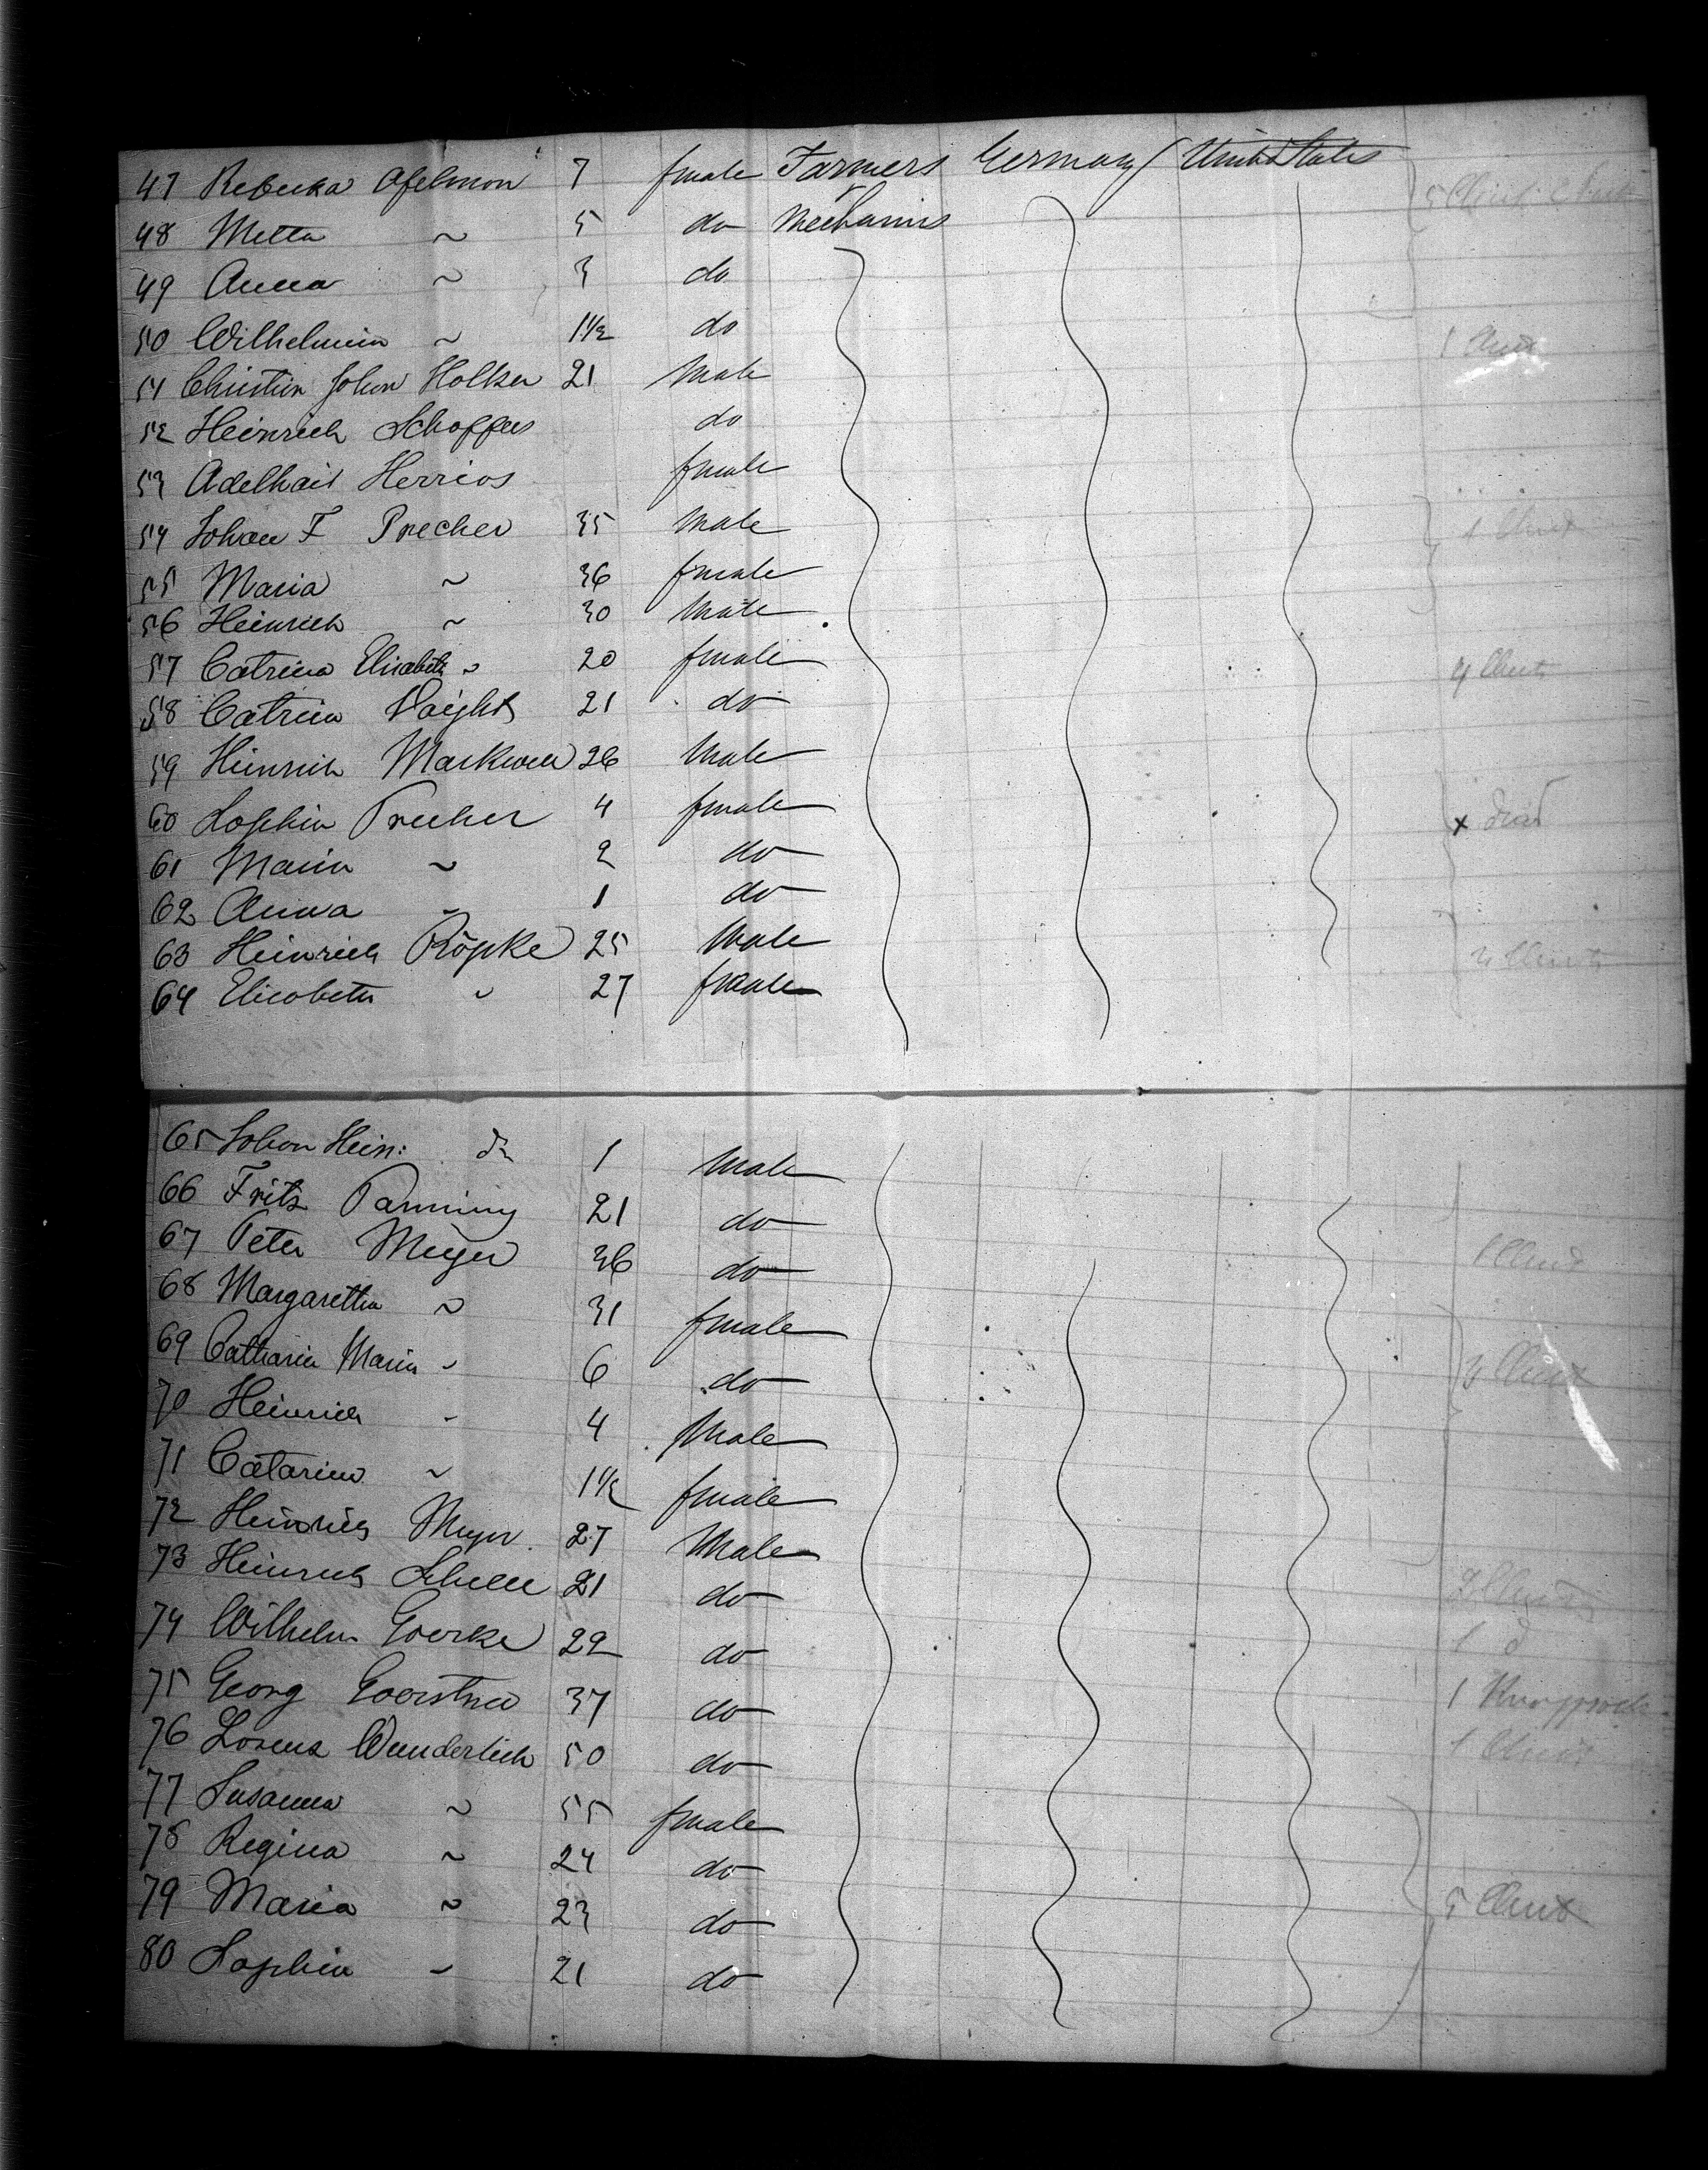 47 Rebecka Afelmon 7 female Farmers Germany United States
48 Metta ~ 5 do Mechanics
49 Anna ~ 3 do
50 Wilhelmin ~ 1 1/2 do 1 Chest
51 Christian Johan Holker 21 Male
52 Heinrich Schoffus do
53 Adelhait Herrios female
54 Johan F Precher 35 Male 1 Chest
55 Maria ~ 36 female
56 Heinrich ~ 30 Male
57 Catrina Elisabeth ~ 20 female 4 Chest
58 Catrina Voight 21 do
59 Heinrich 26 Male
60 Sophia Precher 4 female x died
61 Maria ~ 2 do
62 Anna ~ 1 do
63 Heinrich Röpke 25 Male
64 Elisabeth ~ 27 female
65 Johan Hein: do 1 Male
66 Fritz Panning 21 do
67 Peter Meyer 36 do 1 Chest
68 Margaretha ~ 31 female
69 Catharin Maria ~ 6 do
70 Heinrich ~ 4 Male
71 Catarina ~ 1 1/2 female
72 Heinrich Meyer 27 Male
73 Heinrich 21 do
74 Wilhelm Goerke 22 do 1 d
75 Georg Goerstner 37 do 1
76 Lorenz Wunderlich 50 do 1 Chest
77 Susanna ~ 55 female
78 Regina ~ 24 do
79 Maria ~ 23 do 5 Chest
80 Sophia ~ 21 do